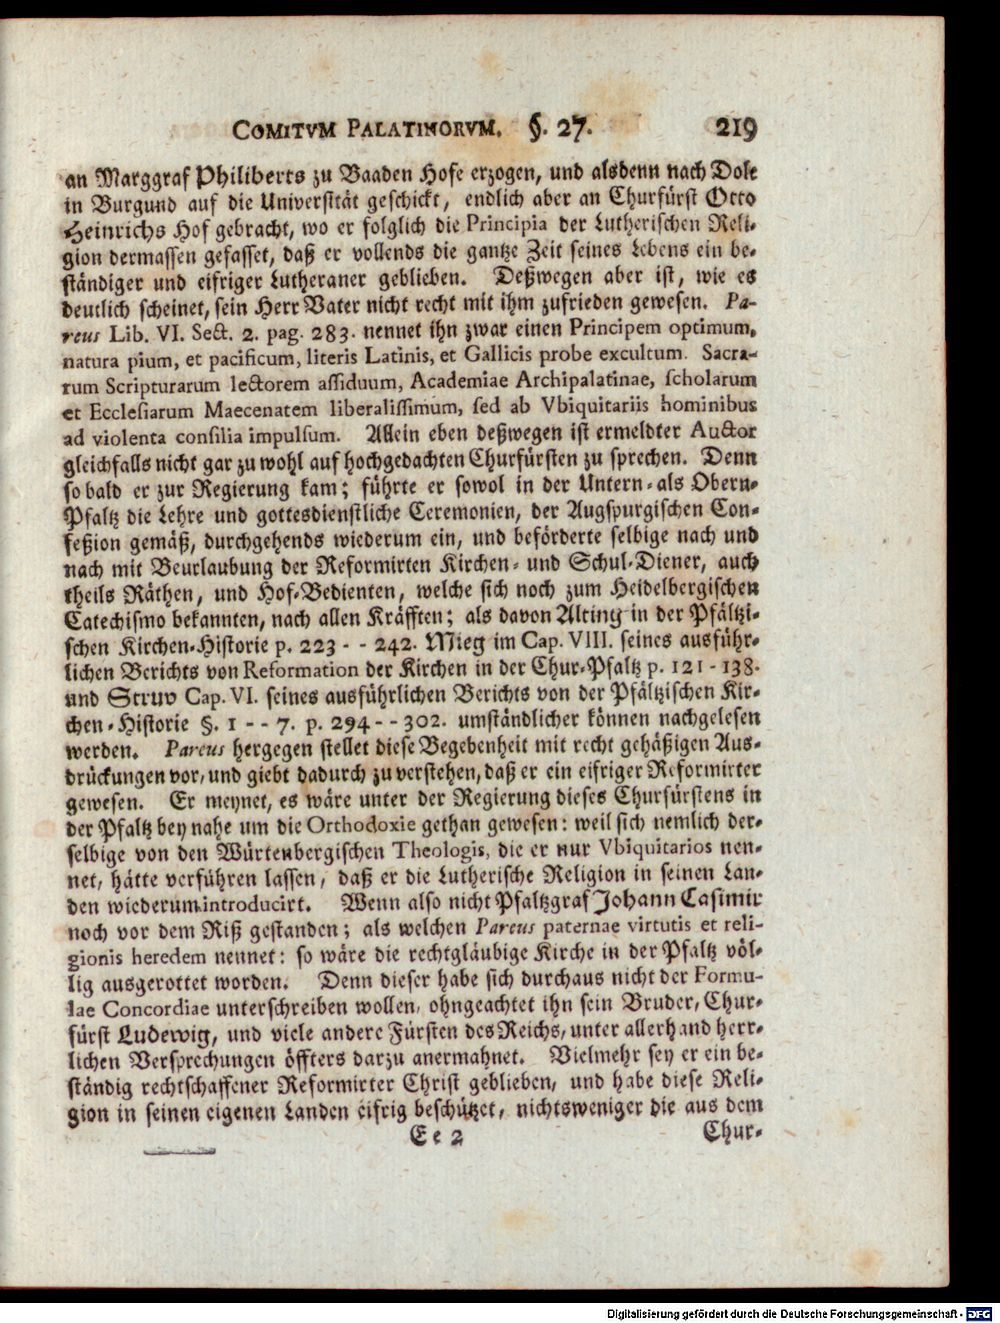 COMITVM PALATINORVM. §. 27. 219
an Marggraf Philiberts zu Baaden Hofe erzogen, und alsdenn nach Dole
in Burgund auf die Universität geschickt, endlich aber an Churfürst Otto
Heinrichs Hof gebracht, wo er folglich die Principia der Lutherischen Reli-
gion dermassen gefasset, daß er vollends die gantze Zeit seines Lebens ein be-
ständiger und eifriger Lutheraner geblieben. Deßwegen aber ist, wie es
deutlich scheinet, sein Herr Vater nicht recht mit ihm zufrieden gewesen. Pa-
reus Lib. VI. Sect. 2. pag. 283. nennet ihn zwar einen Principem optimum,
natura pium, et pacificum, literis Latinis, et Gallicis probe excultum. Sacra-
rum Scripturarum lectorem assiduum, Academiae Archipalatinae, scholarum
et Ecclesiarum Maecenatem liberalissimum, sed ab Vbiquitariis hominibus
ad violenta consilia impulsum. Allein eben deßwegen ist ermeldter Auctor
gleichfalls nicht gar zu wohl auf hochgedachten Churfürsten zu sprechen. Denn
so bald er zur Regierung kam; führte er sowol in der Untern- als Obern-
Pfaltz die Lehre und gottesdienstliche Ceremonien, der Augspurgischen Con-
feßion gemäß, durchgehends wiederum ein, und beförderte selbige nach und
nach mit Beurlaubung der Reformirten Kirchen- und Schul-Diener, auch
theils Räthen, und Hof-Bedienten, welche sich noch zum Heidelbergischen
Catechismo bekannten, nach allen Kräfften; als davon Alting in der Pfältzi-
schen Kirchen-Historie p. 223 - - 242. Mieg im Cap. VIII. seines ausführ-
lichen Berichts von Reformation der Kirchen in der Chur-Pfaltz p. 121 - 138.
und Struv Cap. VI. seines ausführlichen Berichts von der Pfältzischen Kir-
chen-Historie §. 1 - - 7. p. 294 - - 302. umständlicher können nachgelesen
werden. Pareus hergegen stellet diese Begebenheit mit recht gehäßigen Aus-
drückungen vor, und giebt dadurch zu verstehen, daß er ein eifriger Reformirter
gewesen. Er meynet, es wäre unter der Regierung dieses Churfürstens in
der Pfaltz bey nahe um die Orthodoxie gethan gewesen: weil sich nemlich der-
selbige von den Würtenbergischen Theologis, die er nur Vbiquitarios nen-
net, hätte verführen lassen, daß er die Lutherische Religion in seinen Lan-
den wiederum introducirt. Wenn also nicht Pfaltzgraf Johann Casimir
noch vor dem Riß gestanden; als welchen Pareus paternae virtutis et reli-
gionis heredem nennet: so wäre die rechtgläubige Kirche in der Pfaltz völ-
lig ausgerottet worden. Denn dieser habe sich durchaus nicht der Formu-
lae Concordiae unterschreiben wollen, ohngeachtet ihn sein Bruder, Chur-
fürst Ludewig, und viele andere Fürsten des Reichs, unter allerhand herr-
lichen Versprechungen öffters darzu anermahnet. Vielmehr sey er ein be-
ständig rechtschaffener Reformirter Christ geblieben, und habe diese Reli-
gion in seinen eigenen Landen eifrig beschützet, nichtsweniger die aus dem
Ee 2 Chur-
Digitalisierung gefördert durch die Deutsche Forschungsgemeinschaft - DFG